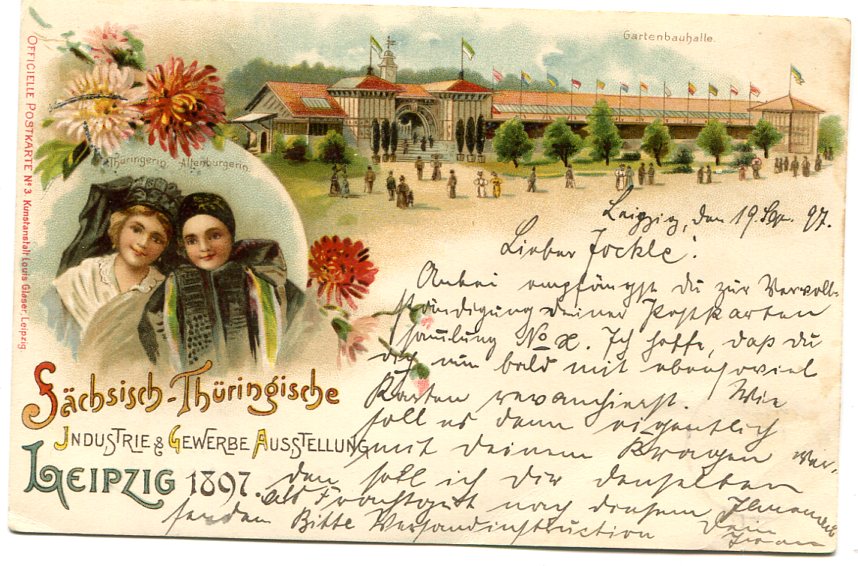 Gartenbauhalle.
OFFICIELLE POSTKARTE No 3. Kunstanstalt Louis Glaser, Leipzig
Thüringerin. Altenburgerin.
Sächsisch-Thüringische
INDUSTRIE & GEWERBE AUSSTELLUNG
LEIPZIG 1897.
Leipzig, den 19. Sep. 97.
Lieber Jockle!
Anbei empfängst du zur Vervoll-
ständigung deiner Postkarten
samlung No X. Ich hoffe, daß du
dich nun bald mit ebensoviel
Karten revanchierst. Wie
soll es denn eigentlich
mit deinem Kragen wer-
den soll ich dir denselben
als Frachtgut nach
senden Bitte Versandinstruction Dein